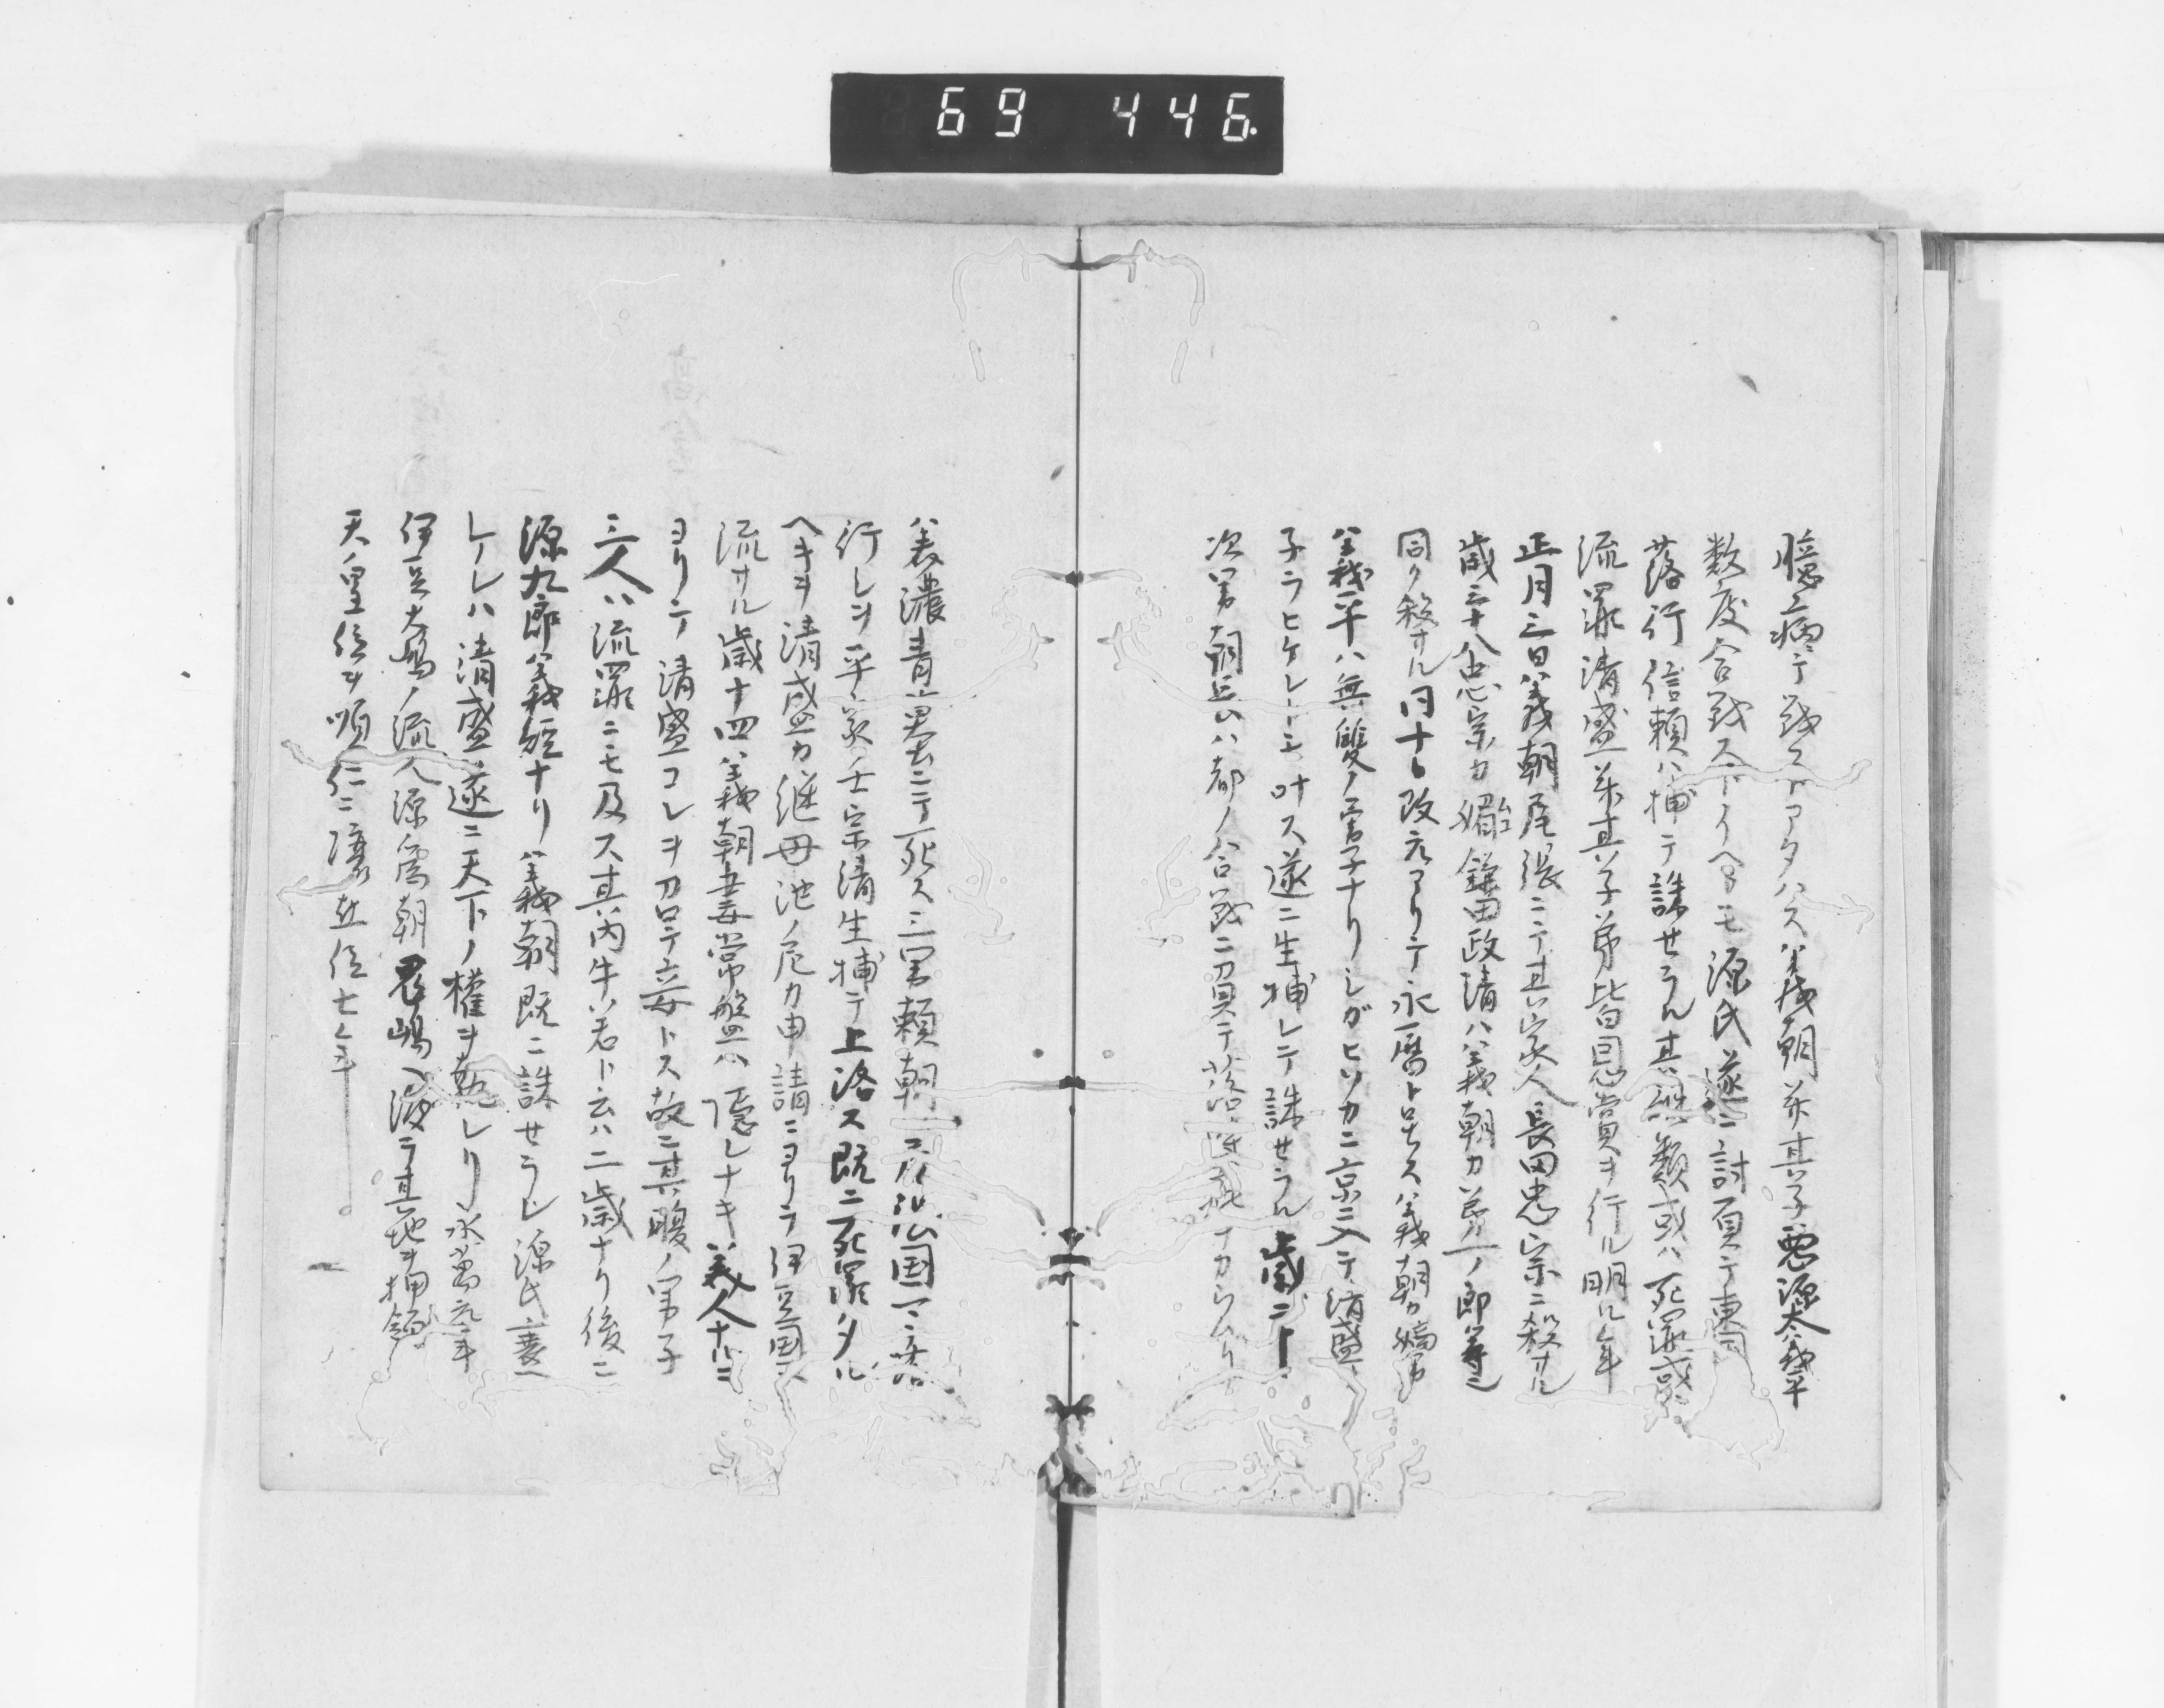 69 446
臆病ニテ戦フニアタハス義朝并其子悪源太義平
数度合戦ストイヘトモ源氏遂ニ討負テ東国
落行信頼ハ捕テ誅セラル其 類或ハ死罪或
流罪清盛并其子弟皆恩賞ヲ行ル明ル年
正月三日義朝尾張ニテ其家人長田忠宗ニ殺サル
歳三十八忠宗カ 鎌田政清ハ義朝カ第一ノ郎等
同ク殺サル同十日改元アリテ永暦ト号ス義朝カ嫡男
義平ハ無雙ノ勇子ナリシガヒソカニ京ニ入テ清盛
子ラヒケレトモ叶ス遂ニ生捕レテ誅セラル歳二十
次男朝長ハ都ノ合戦ニ負テ落
美濃青墓ニテ死ス三男頼朝 国
行シヲ平家ノ士宗清生捕テ上洛ス既ニ死罪タル
ヘキヲ清盛カ継母池ノ尼カ申請ニヨリテ伊豆国
流サル歳十四義朝妻常盤ハ隠レナキ美人ナルニ
ヨリテ清盛コレヲ召テ妾トス故ニ其腹ノ男子
三人ハ流罪ニモ及ス其内牛若ト云ハ二歳ナリ後ニ
源九郎義経ナリ義朝既ニ誅セラレ源氏衰
ケレハ清盛遂ニ天下ノ権ヲ執レリ永萬元年
伊豆大島ノ流人源為朝鬼嶋ヘ渡テ其地ヲ押領
天皇位ヲ順仁ニ譲在位七年